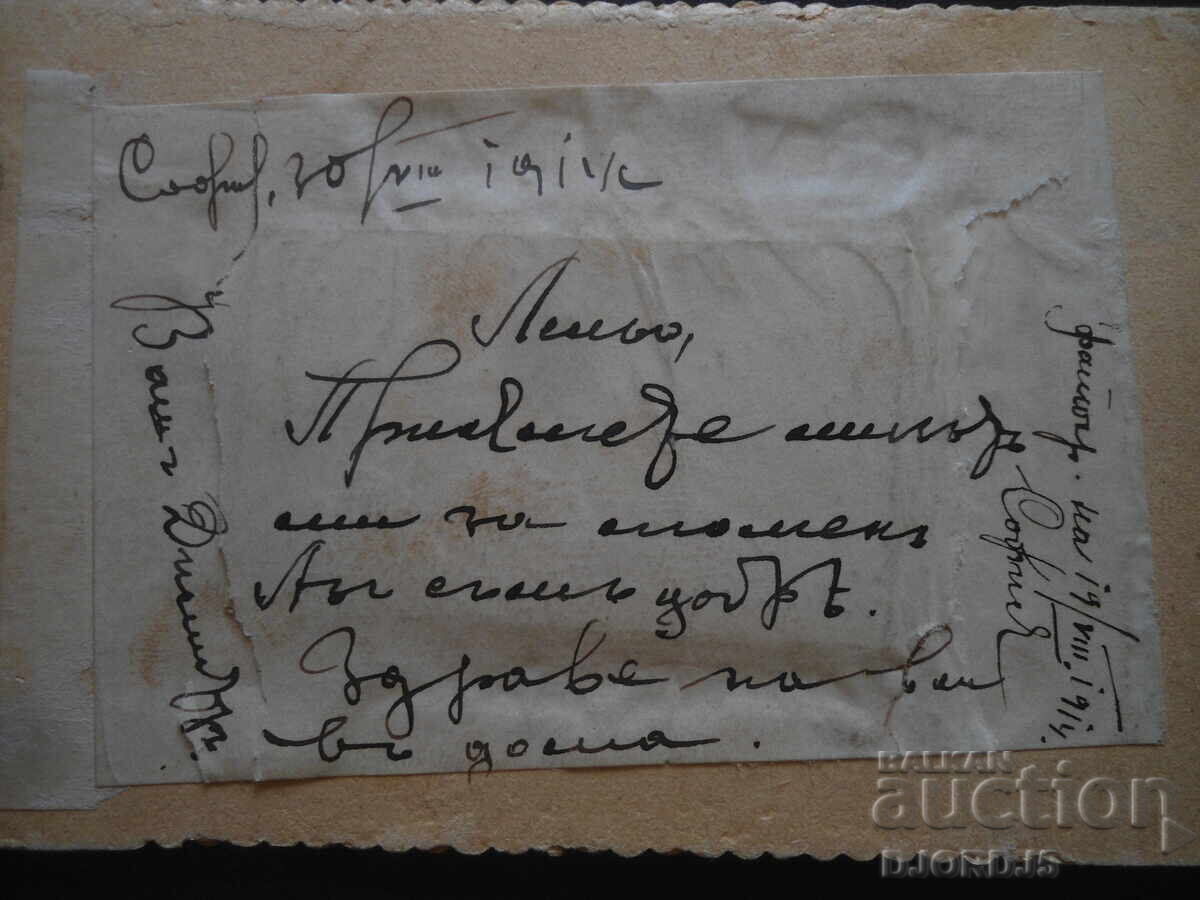 София, 30/VIII 1914 г.
Леньо,
Приемете
ми за спомен
Аз съмъ добрѣ.
Здраве на
въ дома.
Вашъ
фотогр. на 19/VIII.1914.
София
BALKAN
auction
DJORDJ5